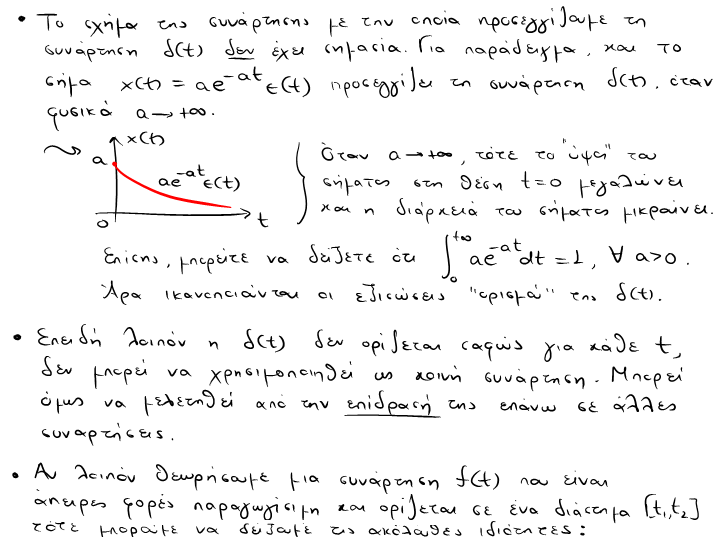 • Το σχήμα της συνάρτησης με την οποία προσεγγίζουμε τη
συνάρτηση δ(t) δεν έχει σημασία. Για παράδειγμα, και το
σήμα x(t) = ae^{-at} ε(t) προσεγγίζει τη συνάρτηση δ(t), όταν
φυσικά a → +∞.
x(t)
a
ae^{-at} ε(t)
0
t
Όταν a → +∞, τότε το "ύψος" του
σήματος στη θέση t=0 μεγαλώνει
και η διάρκειά του σήματος μικραίνει.
Επίσης, μπορείτε να δείξετε ότι ∫_0^{+∞} ae^{-at} dt = 1, ∀ a>0.
Άρα ικανοποιούνται οι εξισώσεις "ορισμού" της δ(t).
• Επειδή λοιπόν η δ(t) δεν ορίζεται σαφώς για κάθε t,
δεν μπορεί να χρησιμοποιηθεί ως κοινή συνάρτηση. Μπορεί
όμως να μελετηθεί από την επίδρασή της επάνω σε άλλες
συναρτήσεις.
• Αν λοιπόν θεωρήσουμε μια συνάρτηση f(t) που είναι
άπειρες φορές παραγωγίσιμη και ορίζεται σε ένα διάστημα [t₁, t₂]
τότε μπορούμε να δείξουμε τις ακόλουθες ιδιότητες: